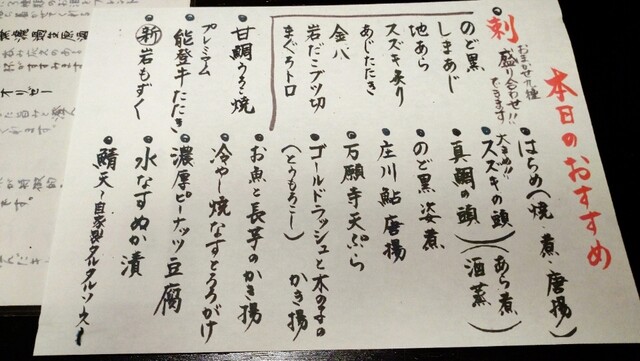 本日のおすすめ
刺 おまかせ九種
盛り合わせ!!
できます
のど黒
しまあじ
地あら
スズキ炙り
あじたたき
金八
岩だこブツ切
まぐろトロ
甘鯛うろこ焼
プレミアム
能登牛たたき
新 岩もずく
はちめ(焼・煮・唐揚)
大きめ!!
スズキの頭(あら煮)
真鯛の頭(酒蒸)
のど黒姿煮
庄川鮎唐揚
万願寺天ぷら
ゴールドラッシュと木の子の
(とうもろこし) かき揚
お魚と長芋のかき揚
冷やし焼なすとろろがけ
濃厚ピーナッツ豆腐
水なすぬか漬
鯖天〜自家製タルタルソース〜